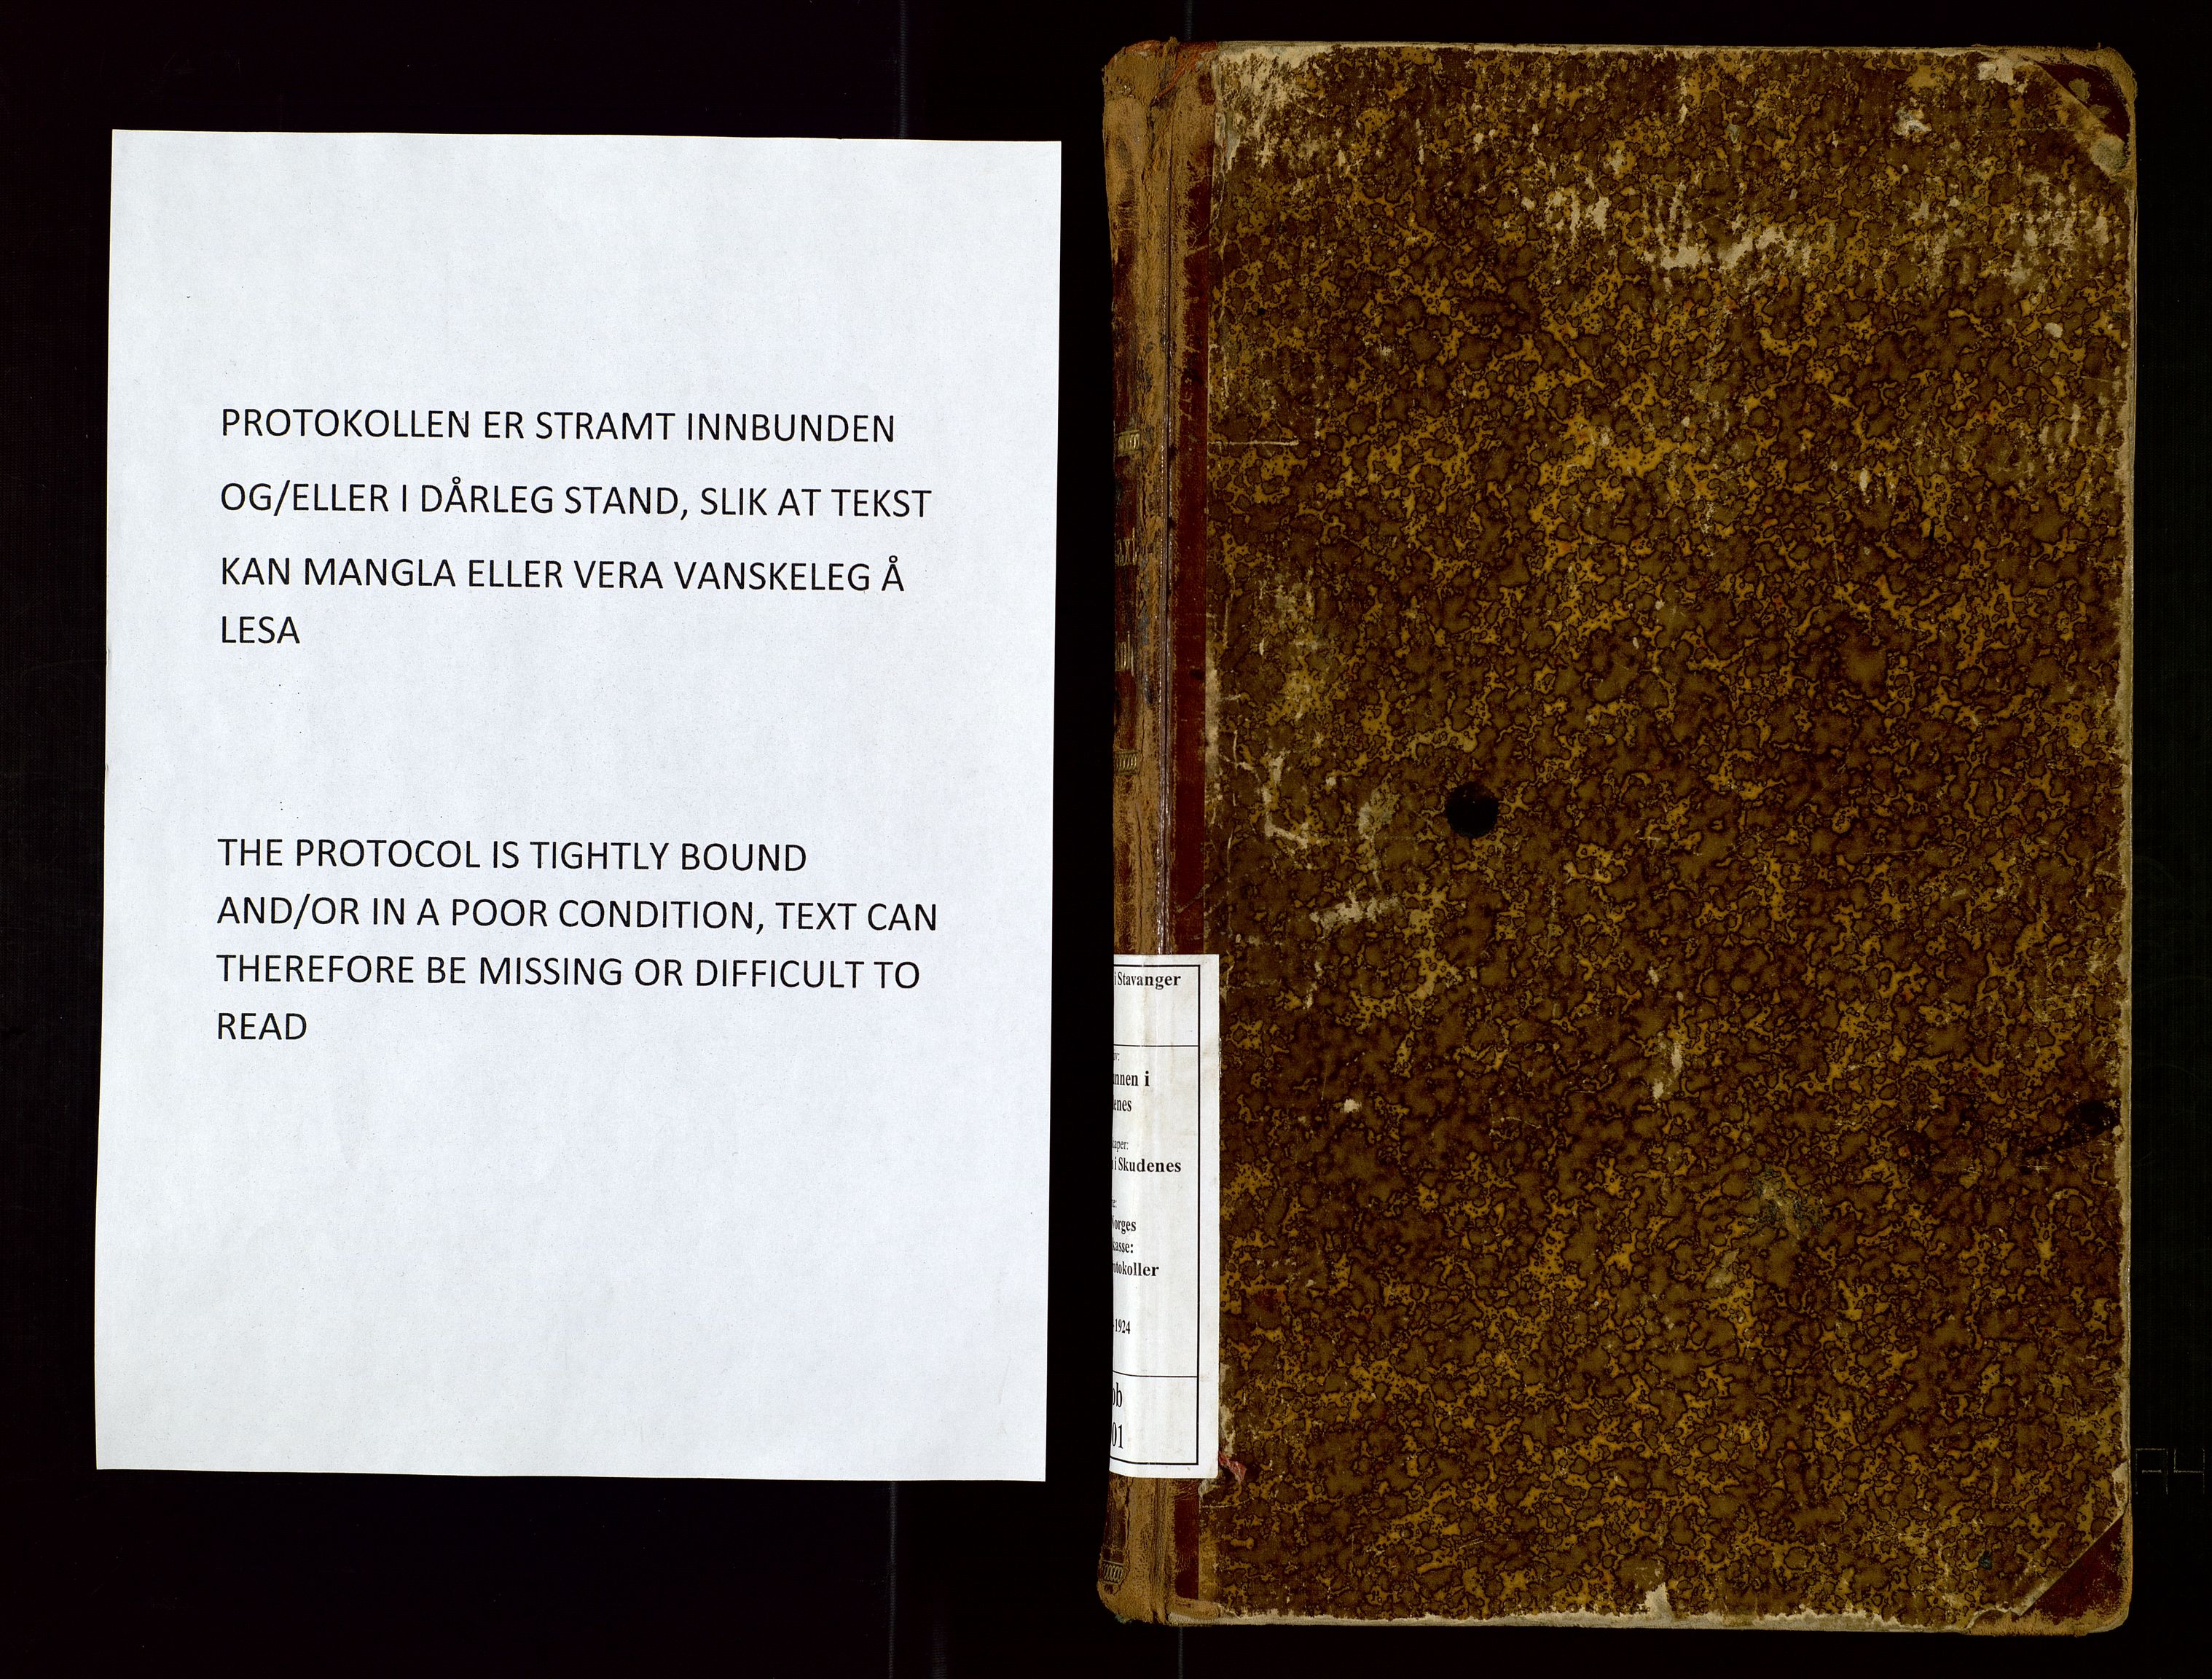 PROTOKOLLEN ER STRAMT INNBUNDEN
OG/ELLER I DÅRLEG STAND, SLIK AT TEKST
KAN MANGLA ELLER VERA VANSKELEG Å
LESA
THE PROTOCOL IS TIGHTLY BOUND
AND/OR IN A POOR CONDITION, TEXT CAN
THEREFORE BE MISSING OR DIFFICULT TO
READ
i Stavanger
nnen i
enes
kaper:
i Skudenes
Norges
kasse:
rotokoller
1924
bb
01